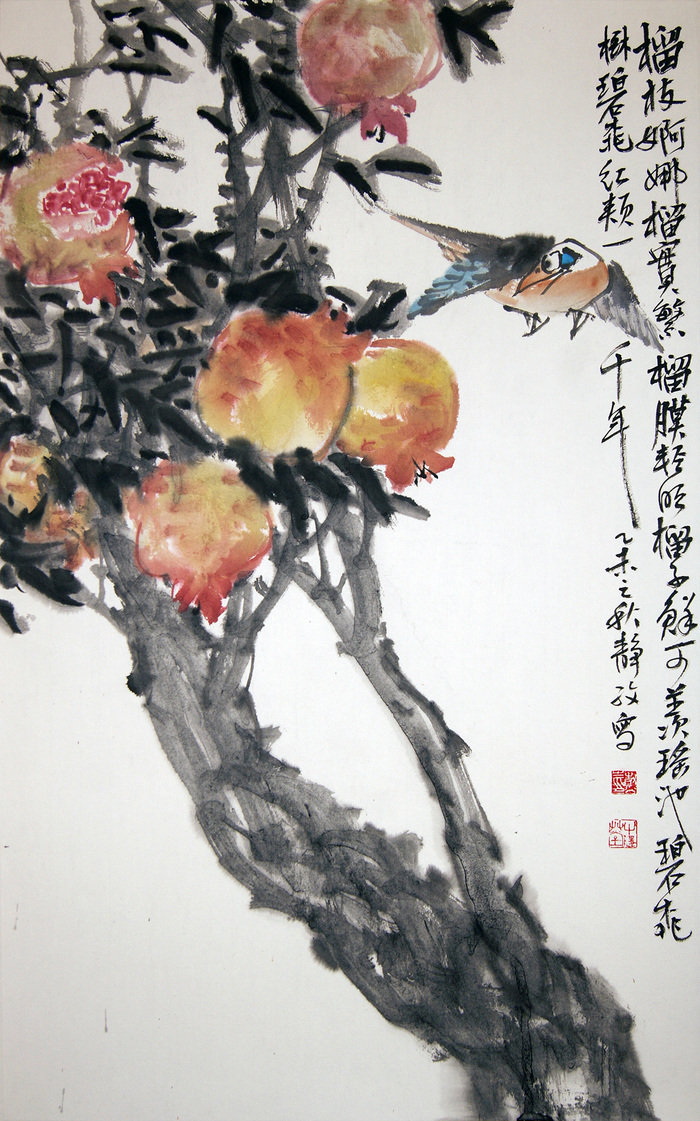 榴枝婀娜榴實繁榴膜轻明榴子鮮可羡瑤池碧桃
樹碧桃红頰一千年 乙未之秋靜寫